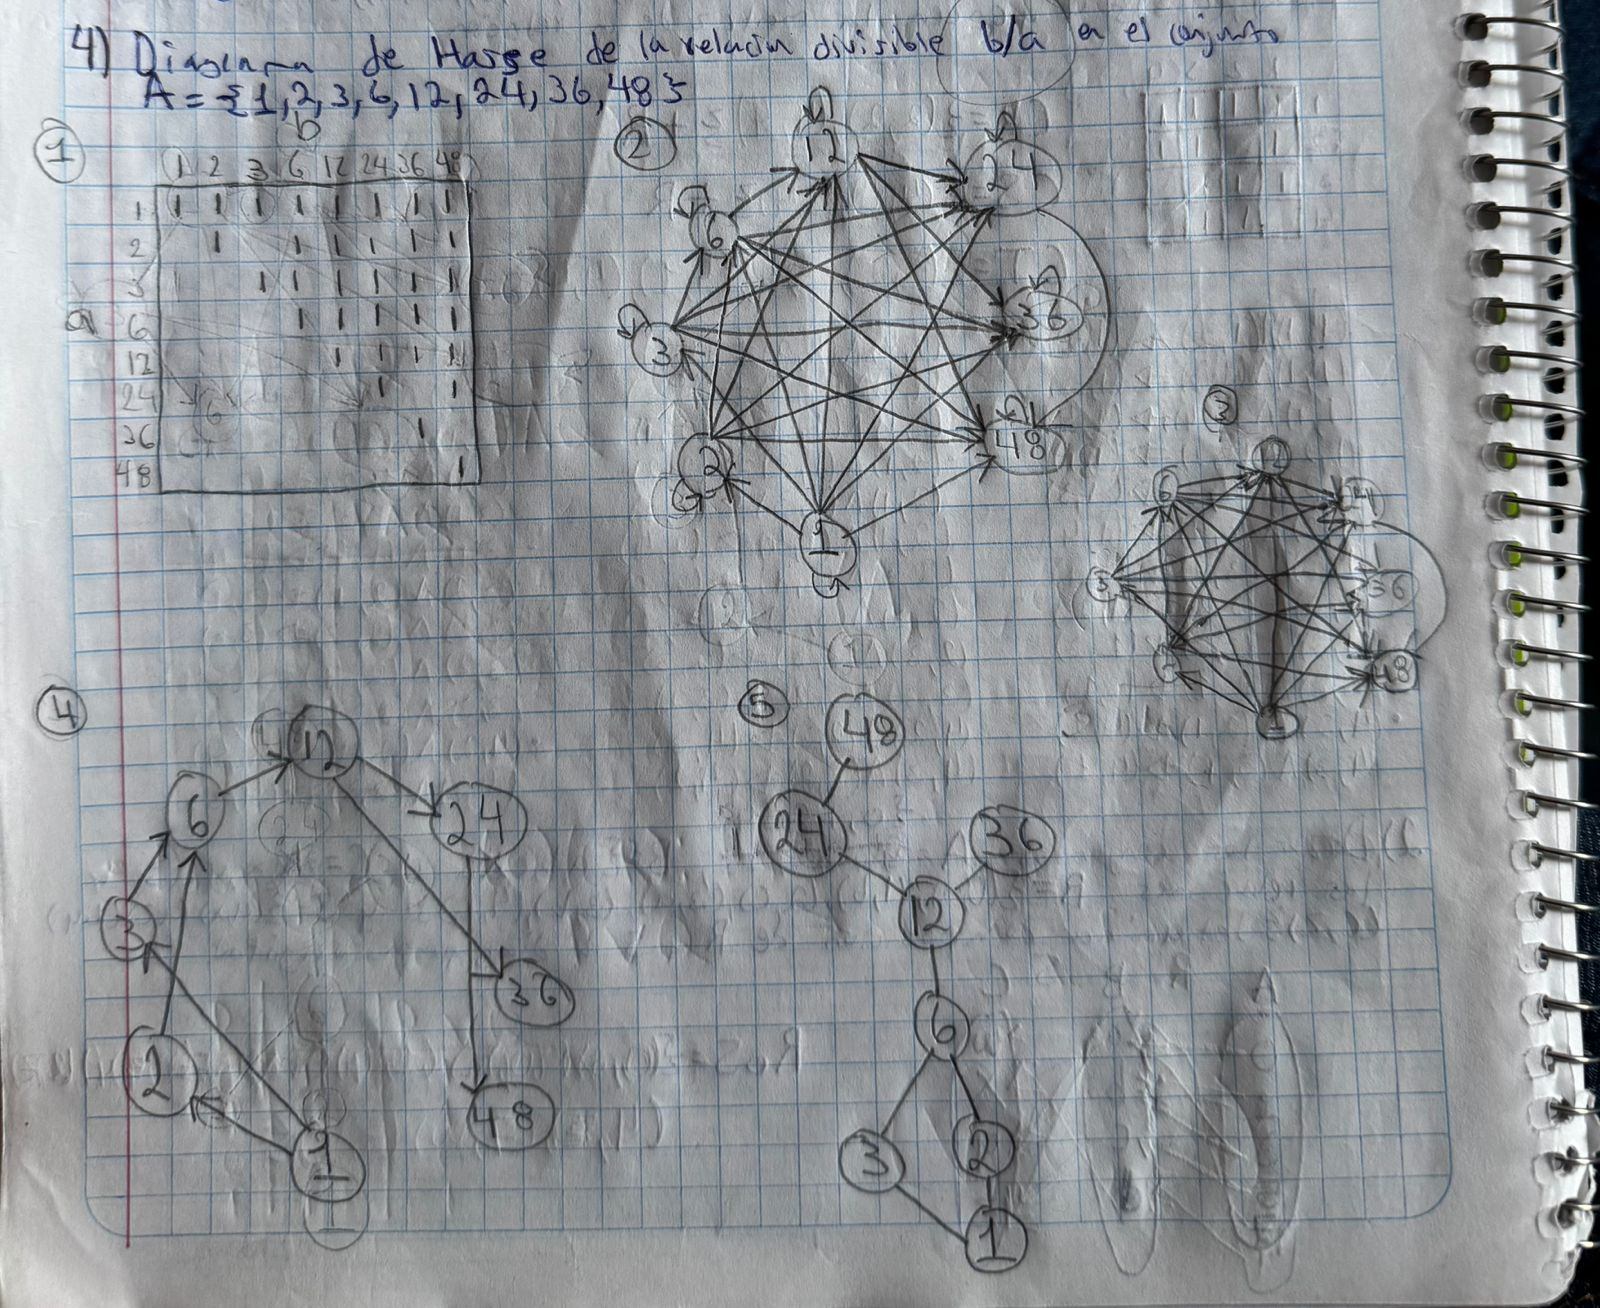 4) Diagrama de Hasse de la relación divisible b/a en el conjunto
A = {1, 2, 3, 6, 12, 24, 36, 48}
b
1
1 2 3 6 12 24 36 48
1 1 1 1 1 1 1 1 1
2 1 1 1 1 1 1
3 1 1 1 1 1 1
a 6 1 1 1 1 1
12 1 1 1 1
24 1 1
36 1
48 1
2
12
24
6
36
3
48
2
1
3
12
6
24
36
3
48
2
1
4
12
6
24
3
36
2
48
1
5
48
24
36
12
6
3
2
1